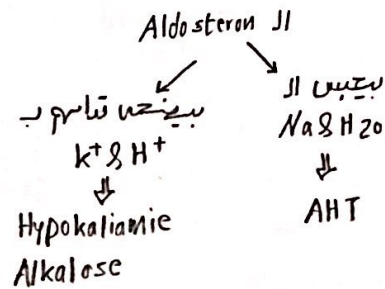 Aldosteron ال
بيحبس ال
Na & H2O
AHT
بيضحي
K+ & H+
Hypokaliamie
Alkalose